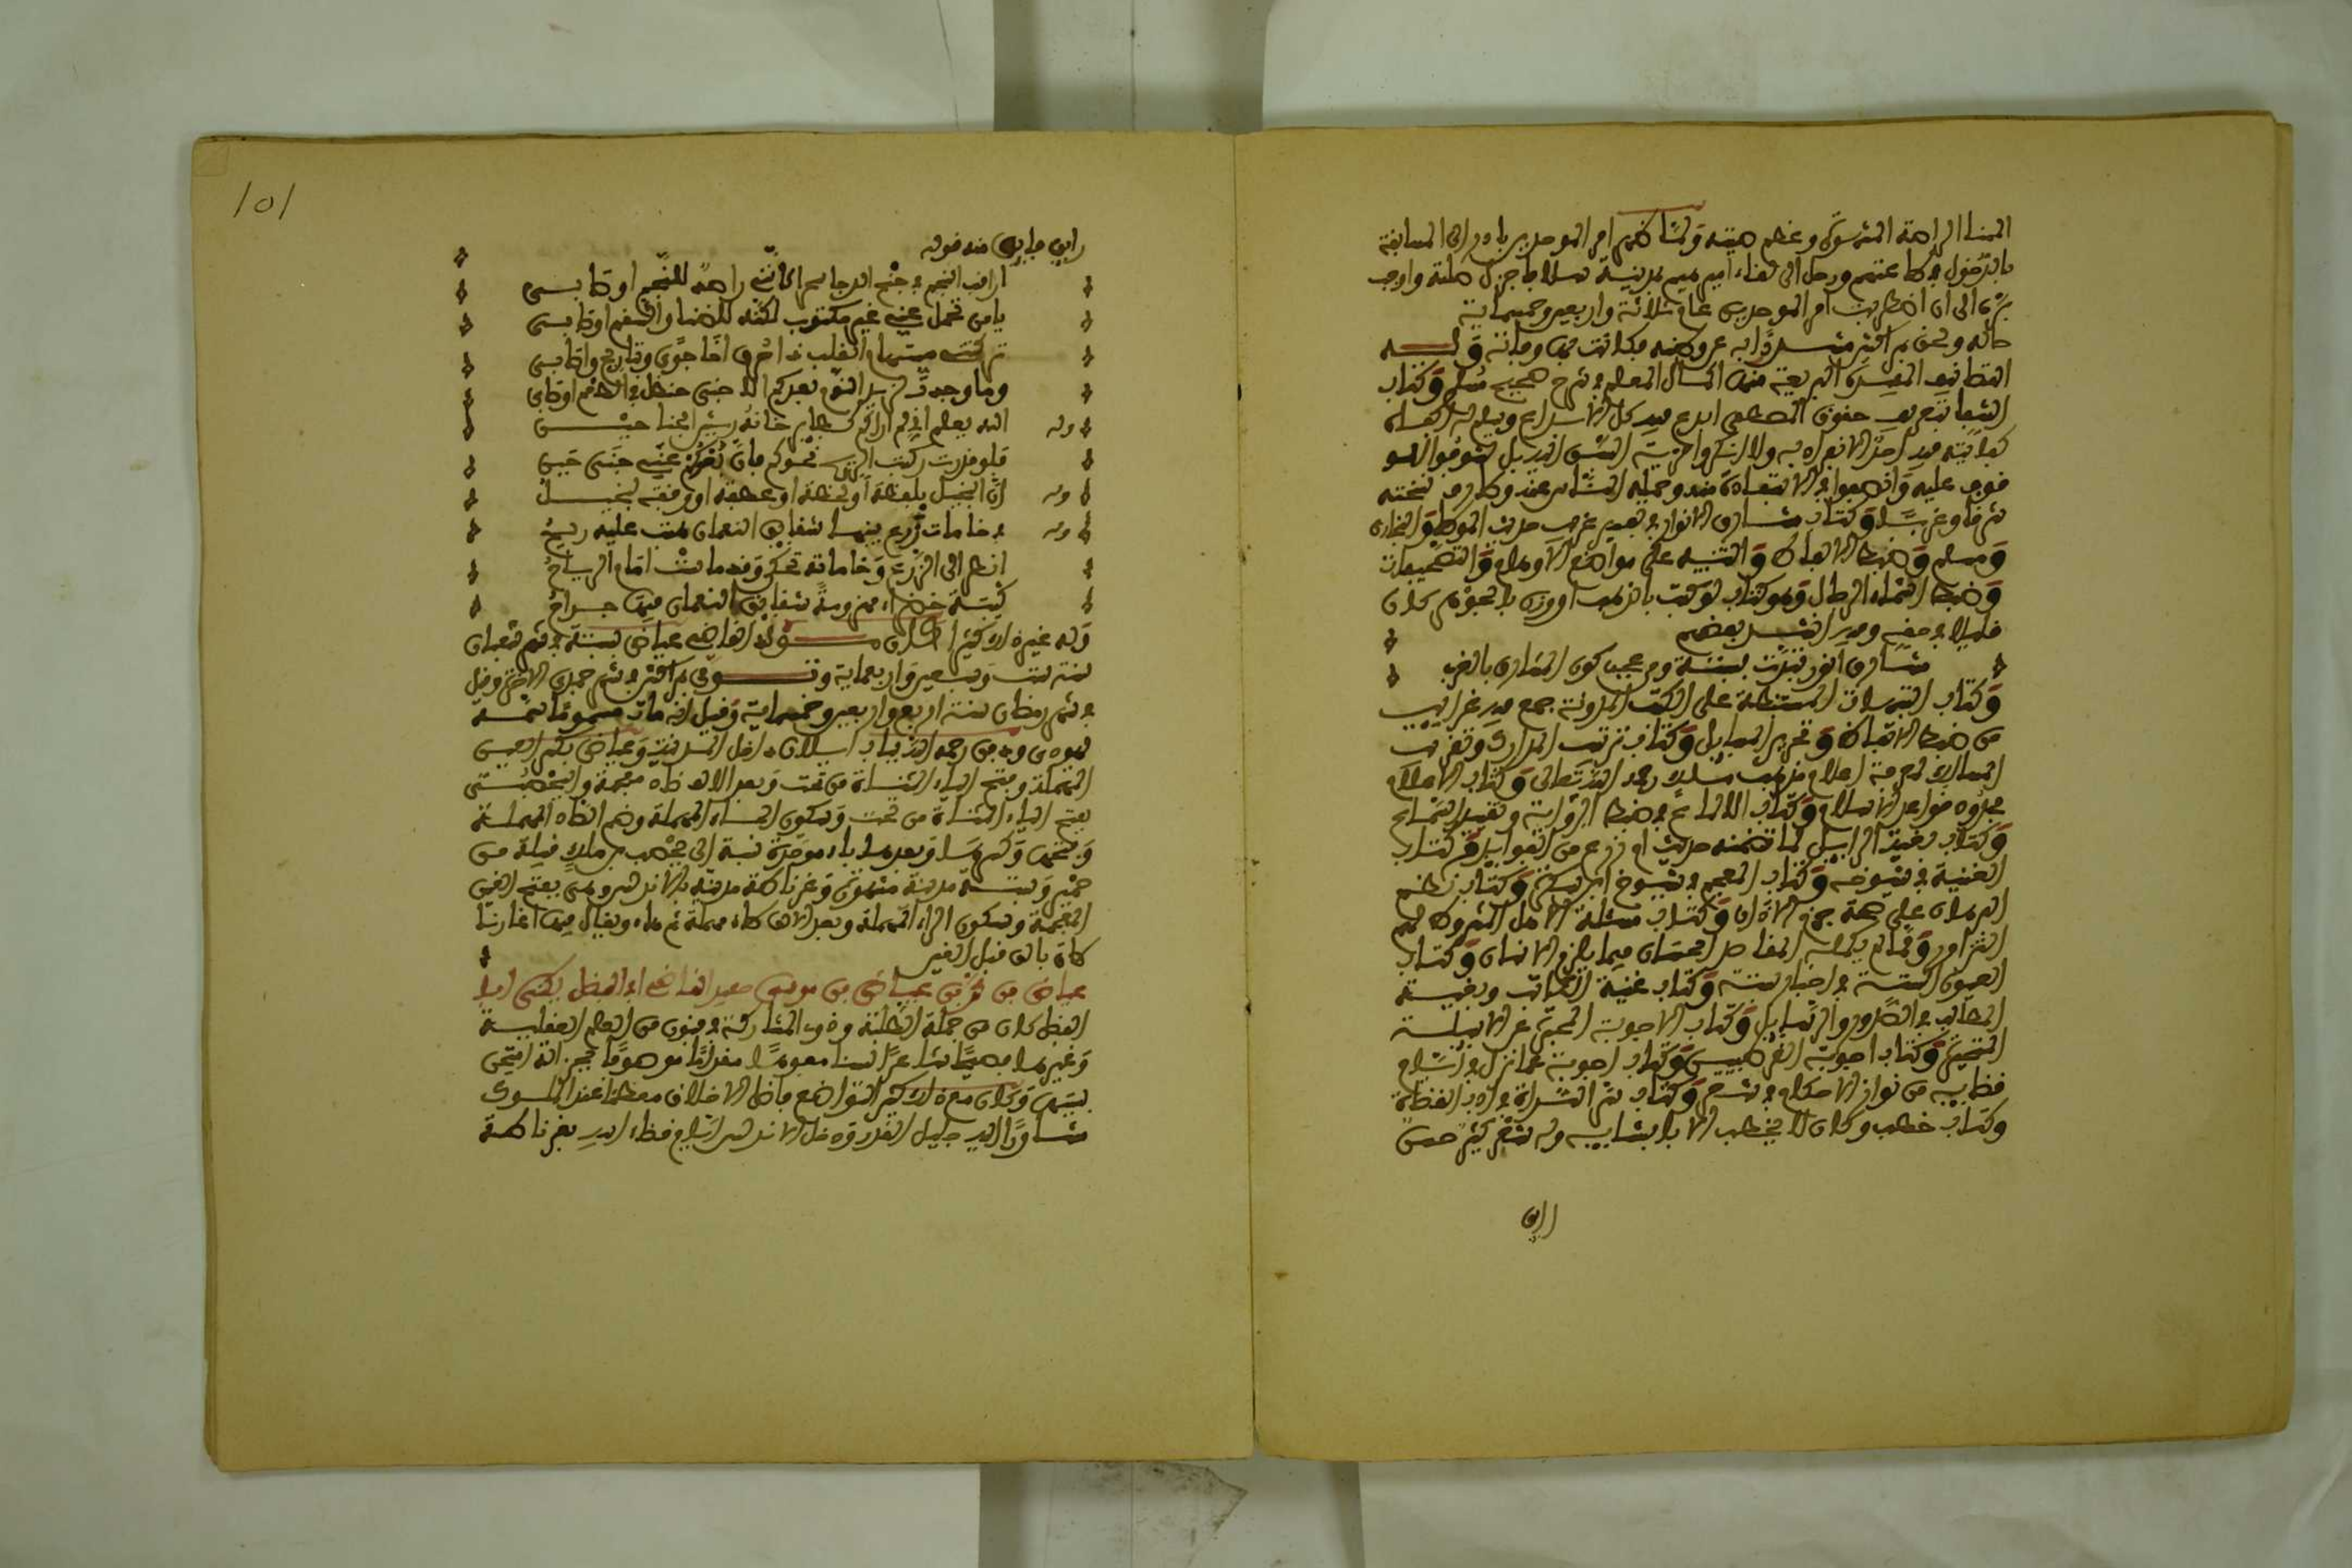 البناء الراحة المشرقة وعظم صيته ولما ظهر امر الموحدين بادر الى المسابقة
بالدخول في طاعتهم ورحل الى لقاء اميرهم بمدينة سلا فاجزل صلته واوجب
بره الى ان اضطربت امر الموحدين عام ثلاثة واربعين وخمسماية
حاله ولحق بمراكش مشردا به عن وطنه فكانت بها وفاته وله
التصانيف المفيدة البديعة منها اكمال المعلم في شرح صحيح مسلم وكتاب
الشفا بتعريف حقوق المصطفى ابدع فيه كل الابداع وسلم له اكفاؤه
كفايته فيه احد الانفراد به ولا انكروا مزية السبق اليه بل تشوفوا للوقوف
عليه وانصفوا في الاستفادة منه وحمله الناس عنه وطارت نسخه
شرقا وغربا وكتاب مشارق الانوار في تفسير غريب حديث الموطا والبخاري
ومسلم وضبط الالفاظ والتنبيه على مواضع الاوهام والتصحيفات
وضبط اسماء الرجال وهو كتاب لو كتب بالذهب او وزن بالجوهر لكان
قليلا في حقه وفيه انشد بعضهم
مشارق انوار تبدت بسبتة ومن عجب كون المشارق بالغرب
وكتاب التنبيهات المستنبطة على الكتب المدونة جمع فيه غرايب
من ضبط الالفاظ وتحرير المسايل وكتاب ترتيب المدارك وتقريب
المسالك لمعرفة اعلام مذهب مالك رحمه الله تعالى وكتاب الاعلام
بحدود قواعد الاسلام وكتاب الالماع في ضبط الرواية وتقييد السماع
وكتاب بغية الرايد لما تضمنه حديث ام زرع من الفوايد وكتاب
الغنية في شيوخه وكتاب المعجم في شيوخ ابن سكرة وكتاب نظم
البرهان على صحة جزم الاذان وكتاب مسئلة الاهل المشروط لهم
التزاور ومما لم يكمله المقاصد الحسان فيما يلزم الانسان وكتاب
العيون الستة في اخبار سبتة وكتاب غنية الكاتب وبغية
الطالب في الصدور والرسايل وكتاب الاجوبة المحبرة عن الاسئلة
المتخيرة وكتاب اجوبة القرطبيين وكتاب اجوبة عما نزل في ايام
قضايه من نوازل الاحكام في سفر وكتاب سر السراة في ادب القضاة
وكتاب خطب وكان لا يخطب الا بانشايه وله شعر كثير حسن
رايق
101
رايق فايق منه قوله
اراقب النجم في جنح الدجا سحرا كانني راصد للنجم او قابسي
يا من تحمل عني غير مكترث لكنه للضنا والسقم اوصا بي
تركت مستهام القلب ذا حرق اخا جوى وتباريح واوصاب
وما وجدت لذيذ النوم بعدكم الا جنى حنظل في الطعم او صاب
وله الله يعلم اني منذ لم اركم كطاير خانه ريش الجناحين
فلو قدرت ركبت الريح نحوكم فان بعدكم عني جنى حيني
وله ان البخيل بلحظه او لفظه او عطفه او رفقه لبخيل
وله في خامات زرع بينها شقايق النعمان هبت عليه ريح
انظر الى الزرع وخاماته تحكي وقد ماست امام الرياح
كتيبة خضراء مهزومة شقايق النعمان فيها جراح
وله غير ذلك كثير كان مولد القاضي عياض بسبتة في شهر شعبان
سنة ست وسبعين واربعماية وتوفي بمراكش في شهر جمدى الاخيرة وقيل
في شهر رمضان سنة اربع واربعين وخمسماية وقيل انه مات مسموما سمه
يهودي ودفن رحمه الله بباب ايلان داخل المدينة وعياض بكسر العين
المهملة وفتح الياء المثناة من تحت وبعد الالف ضاد معجمة واليحصبي
بفتح الياء المثناة من تحت وسكون الحاء المهملة وضم الصاد المهملة
وفتحها وكسرها وبعدها باء موحدة نسبة الى يحصب بن مالك قبيلة من
حمير وسبتة مدينة مشهورة وغرناطة مدينة بالاندلس وهي بفتح الغين
المعجمة وسكون الراء المهملة وبعد الالف طاء مهملة ثم هاء ويقال فيها اغرنا
طة بالف قبل الغين
عياض بن محمد بن عياض بن موسى حفيد القاضي ابي الفضل يكنى ابا
الفضل كان من جملة الطلبة وذوي المشاركة في فنون من العلم العقلية
وغيرها فصيحا شاعرا لسنا مفوها مقداما موصوفا بجزالة امتحن
بسببها وكان مع ذلك كثير التواضع فاضل الاخلاق معظما عند الملوك
مشارا اليه جليل القدر دخل الاندلس ايام قضاء ابيه بغرناطة